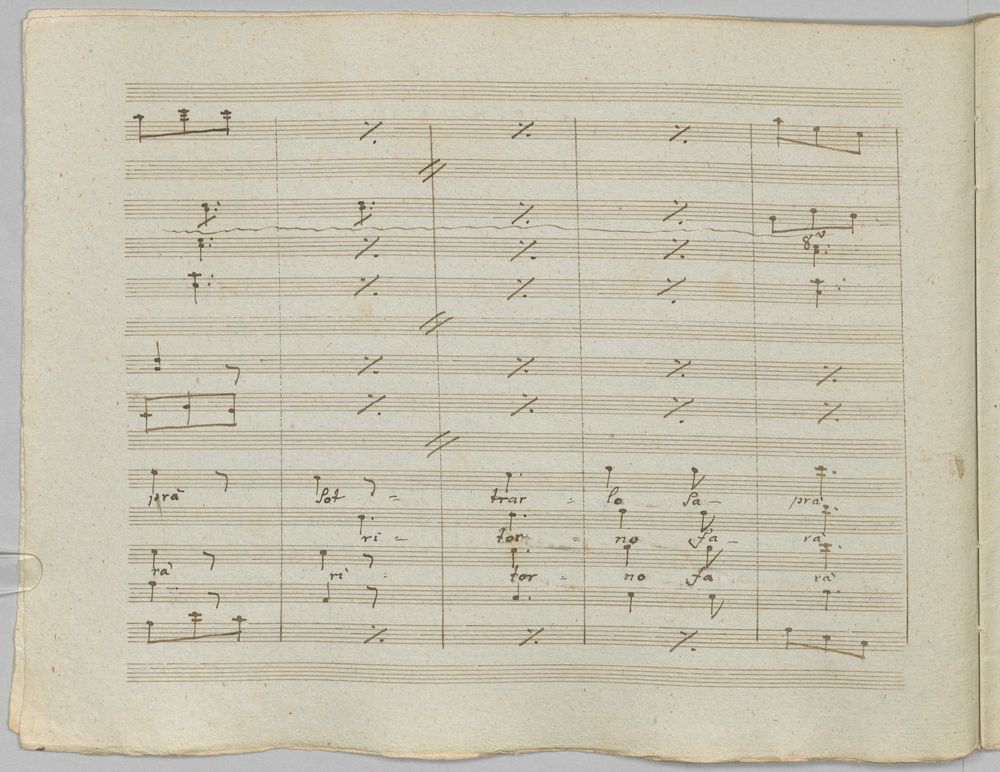 8v
prà sot = trar = lo sa- prà
ri- = tor- = no fa- rà
rà ri = tor = no fa rà